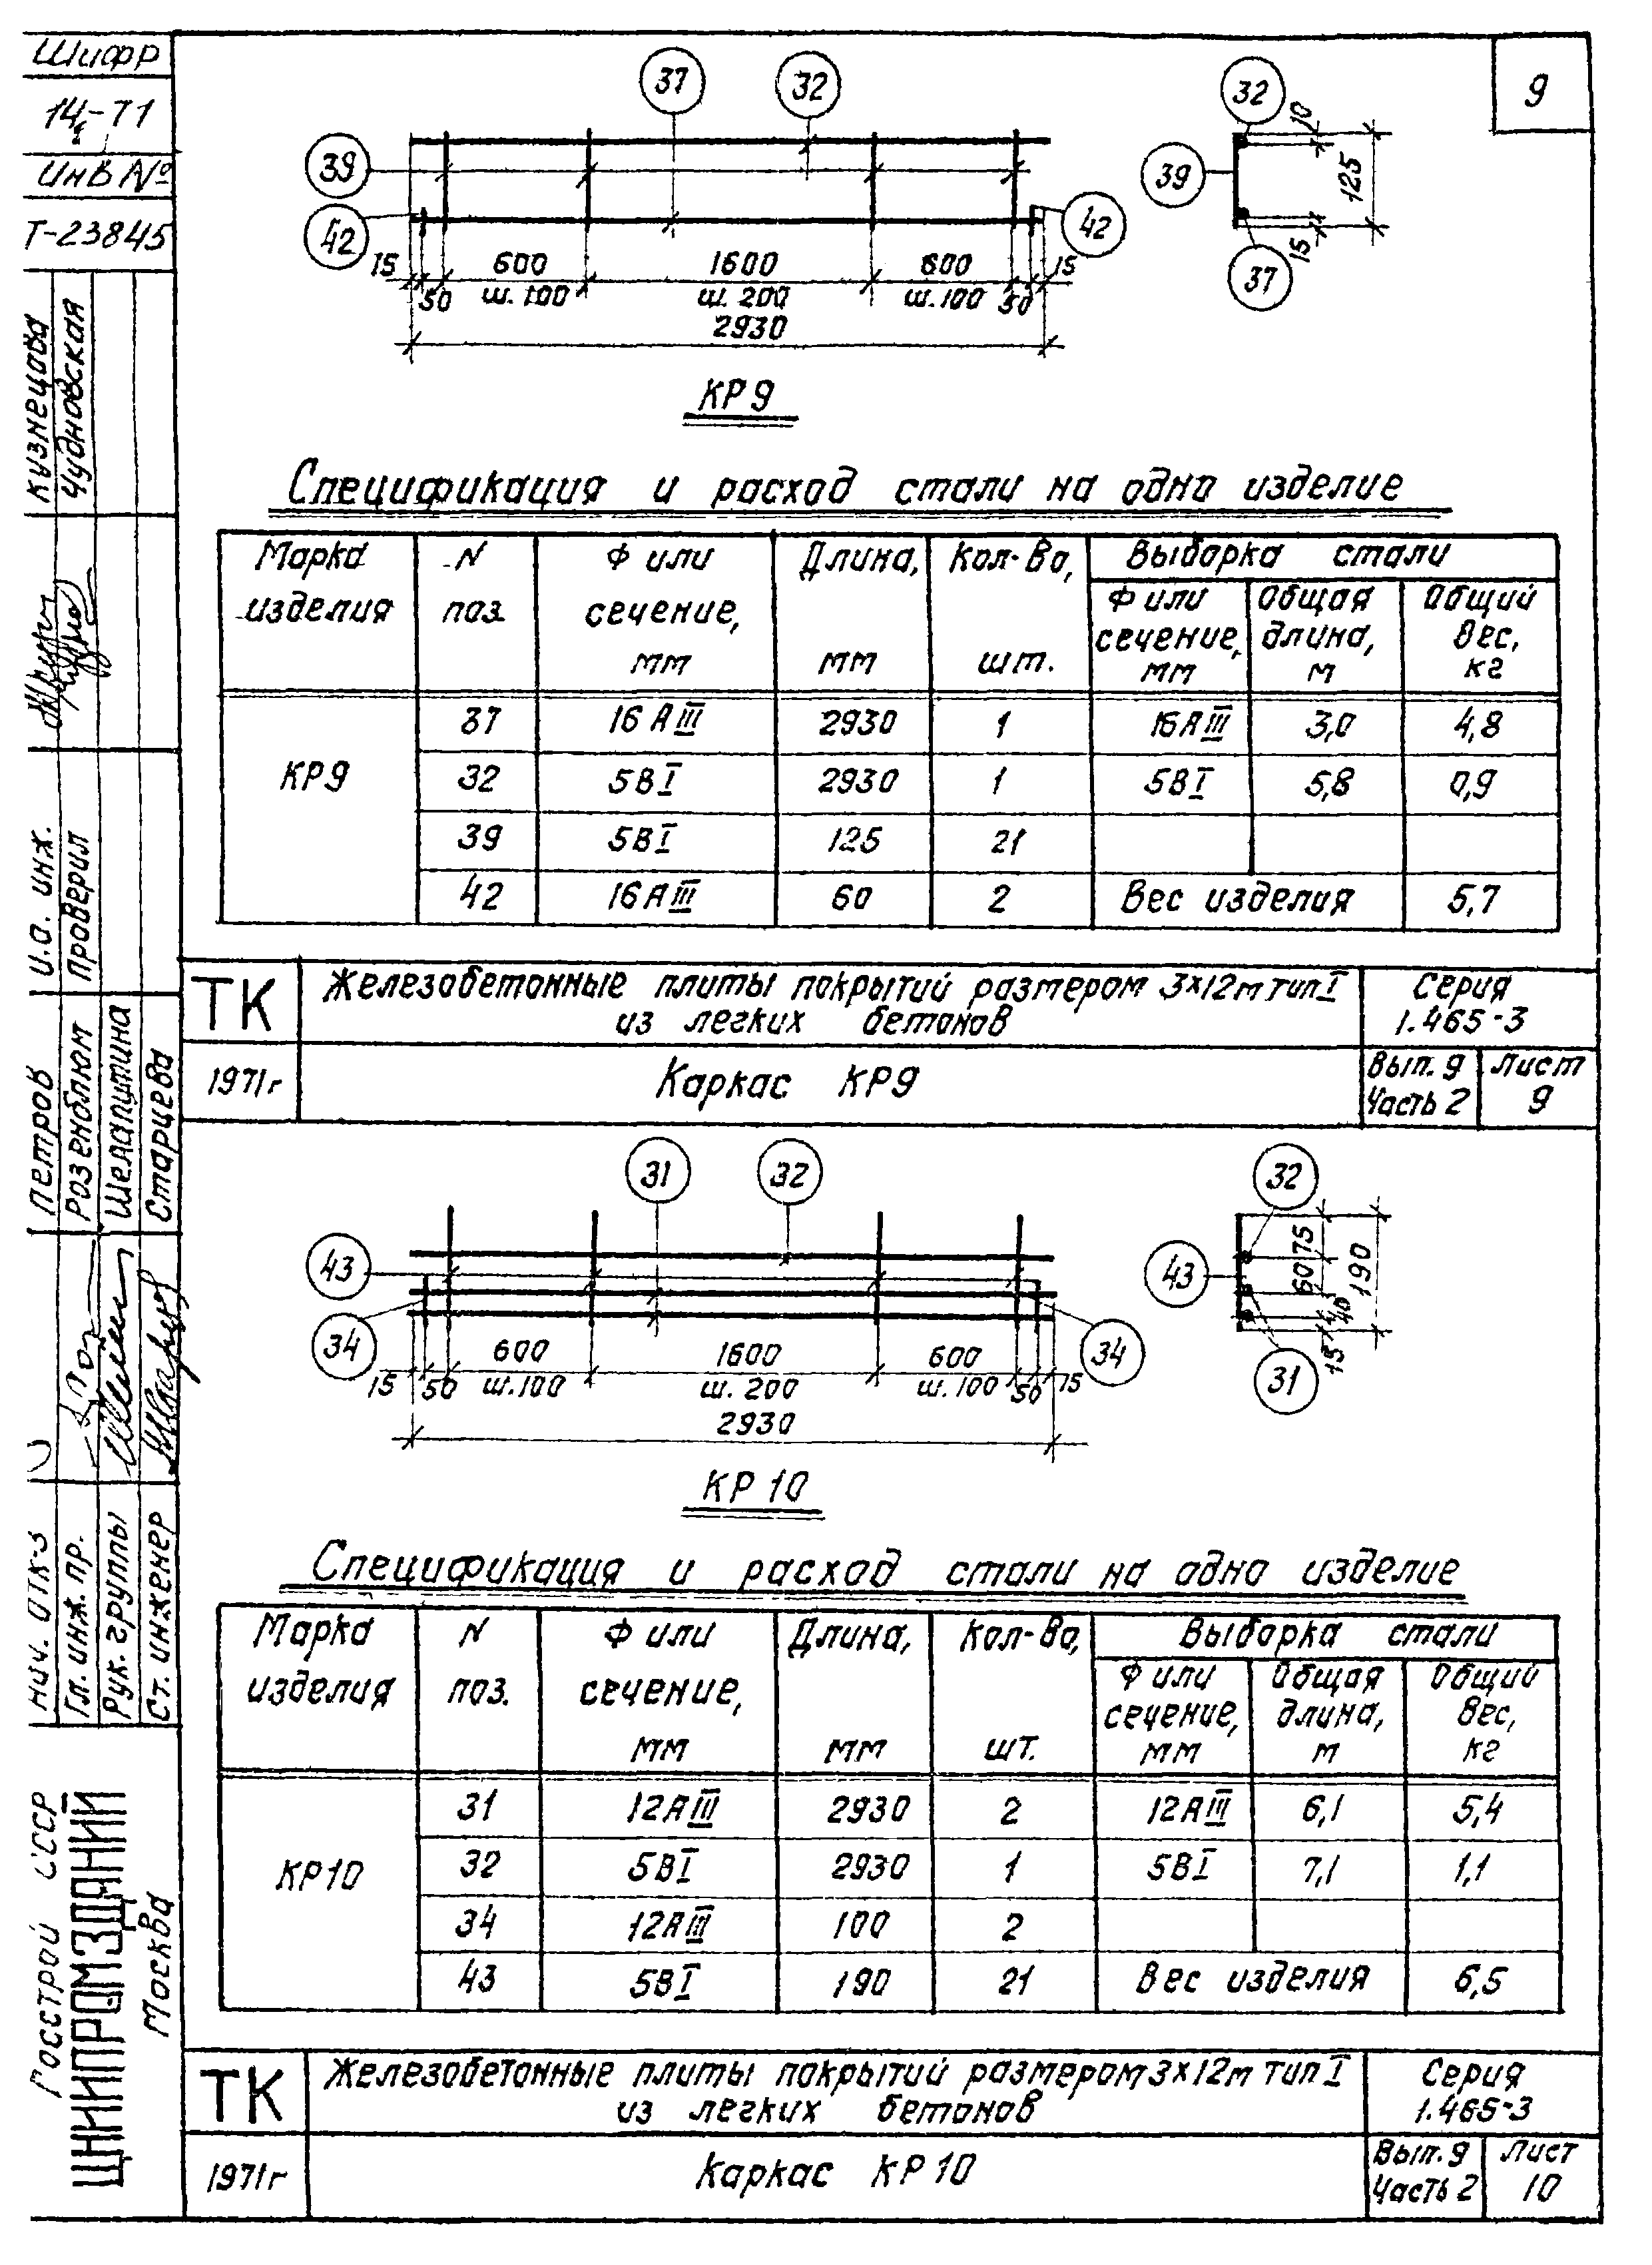 Шифр
14-71
Инв №
Т-23845
Кузнецова
Чудновская
и.о. инж.
Проверил
Петров
Розенблюм
Шелапутина
Старцева
Нач. ОТК-3
Гл. инж. пр.
Рук. группы
Ст. инженер
Госстрой СССР
ЦНИИПРОМЗДАНИЙ
Москва
9
37 32
39
42 42
15 50 600 1600 600 50 15
ш. 100 ш. 200 ш. 100
2930
32
39
37
10
125
15
КР9
Спецификация и расход стали на одно изделие
Марка изделия N поз. Ф или сечение, мм Длина, мм Кол-во, шт. Выборка стали
Ф или сечение, мм Общая длина, м Общий вес, кг
КР9
37 16АIII 2930 1 16АIII 3,0 4,8
32 5ВI 2930 1 5ВI 5,8 0,9
39 5ВI 125 21
42 16АIII 60 2 Вес изделия 5,7
ТК Железобетонные плиты покрытий размером 3×12м тип I
из легких бетонов
Серия
1.465-3
1971г Каркас КР9
Вып. 9
Часть 2
Лист
9
31 32
43
34 34
15 50 600 1600 600 50 15
ш. 100 ш. 200 ш. 100
2930
32
43
31
75
60
40
15
190
КР10
Спецификация и расход стали на одно изделие
Марка изделия N поз. Ф или сечение, мм Длина, мм Кол-во, шт. Выборка стали
Ф или сечение, мм Общая длина, м Общий вес, кг
КР10
31 12АIII 2930 2 12АIII 6,1 5,4
32 5ВI 2930 1 5ВI 7,1 1,1
34 12АIII 100 2
43 5ВI 190 21 Вес изделия 6,5
ТК Железобетонные плиты покрытий размером 3×12м тип I
из легких бетонов
Серия
1.465-3
1971г Каркас КР10
Вып. 9
Часть 2
Лист
10